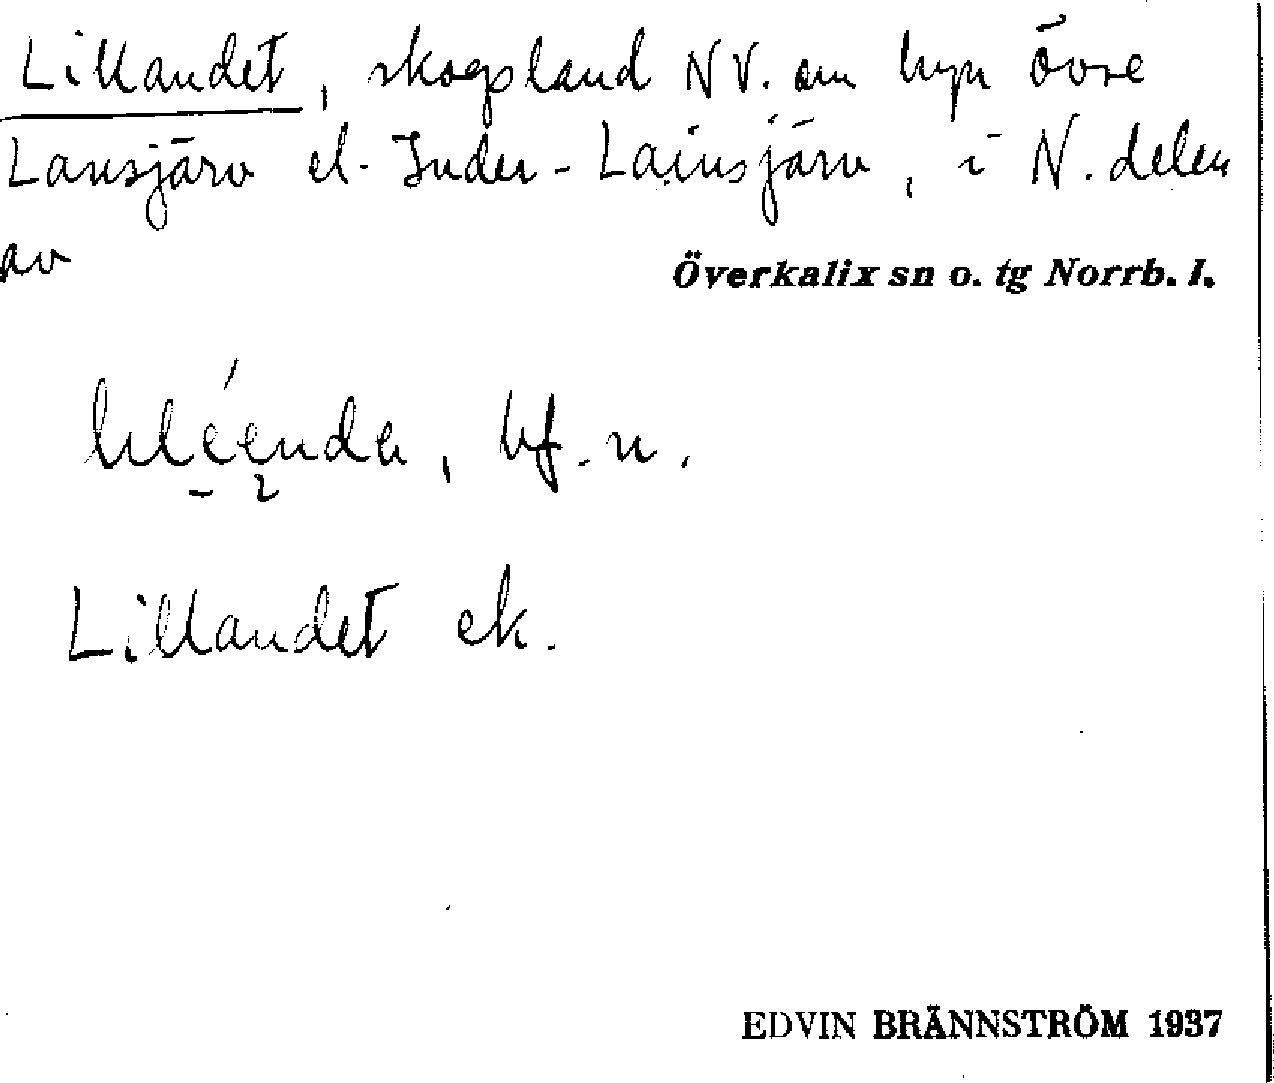 Lillandet, skogsland NV. om byn Övre
Lansjärv el. Inder-Lainsjärv, i N. delen
av
Överkalix sn o. tg Norrb. l.
bf. n.
Lillandet ek.
EDVIN BRÄNNSTRÖM 1937